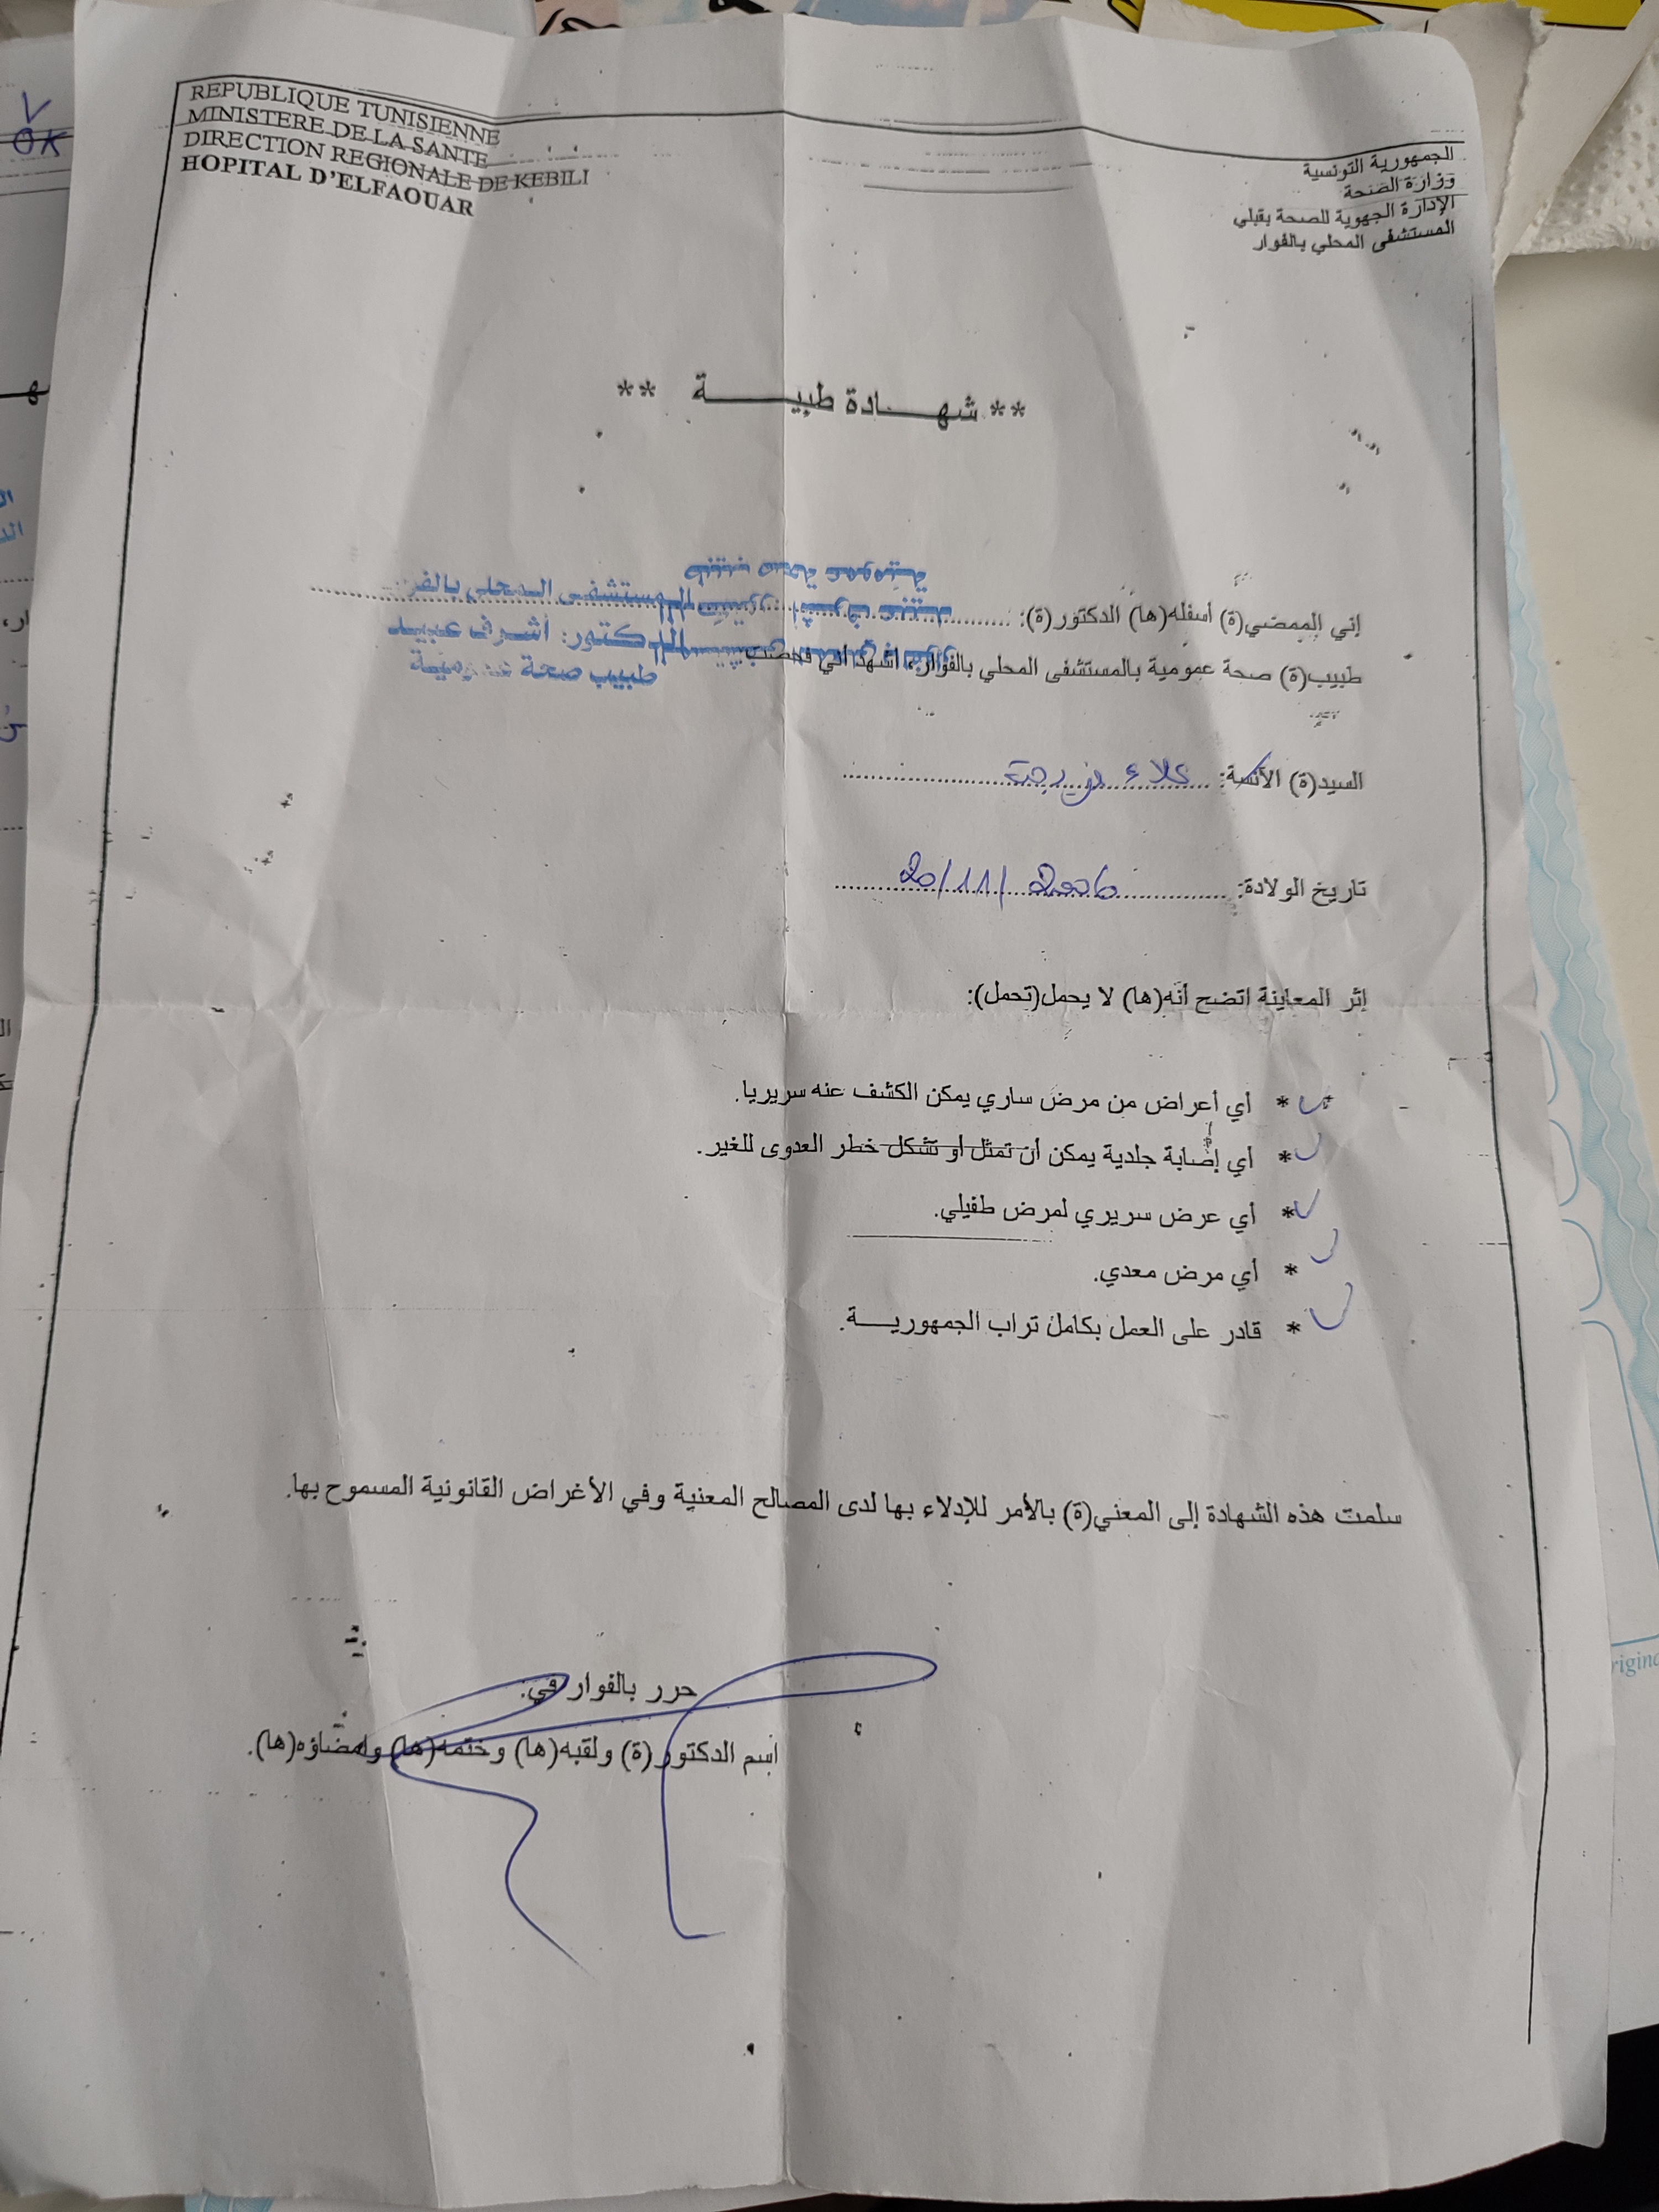 REPUBLIQUE TUNISIENNE
MINISTERE DE LA SANTE
DIRECTION REGIONALE DE KEBILI
HOPITAL D'ELFAOUAR
الجمهورية التونسية
وزارة الصحة
الإدارة الجهوية للصحة بقبلي
المستشفى المحلي بالفوار
** شهـــادة طبيـــــة **
إني الممضي(ة) أسفله(ها) الدكتور(ة):
المستشفى المحلي
الدكتور: أشرف عبيد
طبيب صحة عمومية
طبيب(ة) صحة عمومية بالمستشفى المحلي بالفوار، أشهد أني فحصت
السيد(ة) الآنسة: علاء
تاريخ الولادة: 20/11/2006
إثر المعاينة اتضح أنه(ها) لا يحمل(تحمل):
* أي أعراض من مرض ساري يمكن الكشف عنه سريريا.
* أي إصابة جلدية يمكن أن تمثل أو تشكل خطر العدوى للغير.
* أي عرض سريري لمرض طفيلي.
* أي مرض معدي.
* قادر على العمل بكامل تراب الجمهوريـــة.
سلمت هذه الشهادة إلى المعني(ة) بالأمر للإدلاء بها لدى المصالح المعنية وفي الأغراض القانونية المسموح بها.
حرر بالفوار في:
اسم الدكتور(ة) ولقبه(ها) وختمه(ها) وامضاؤه(ها).
OK